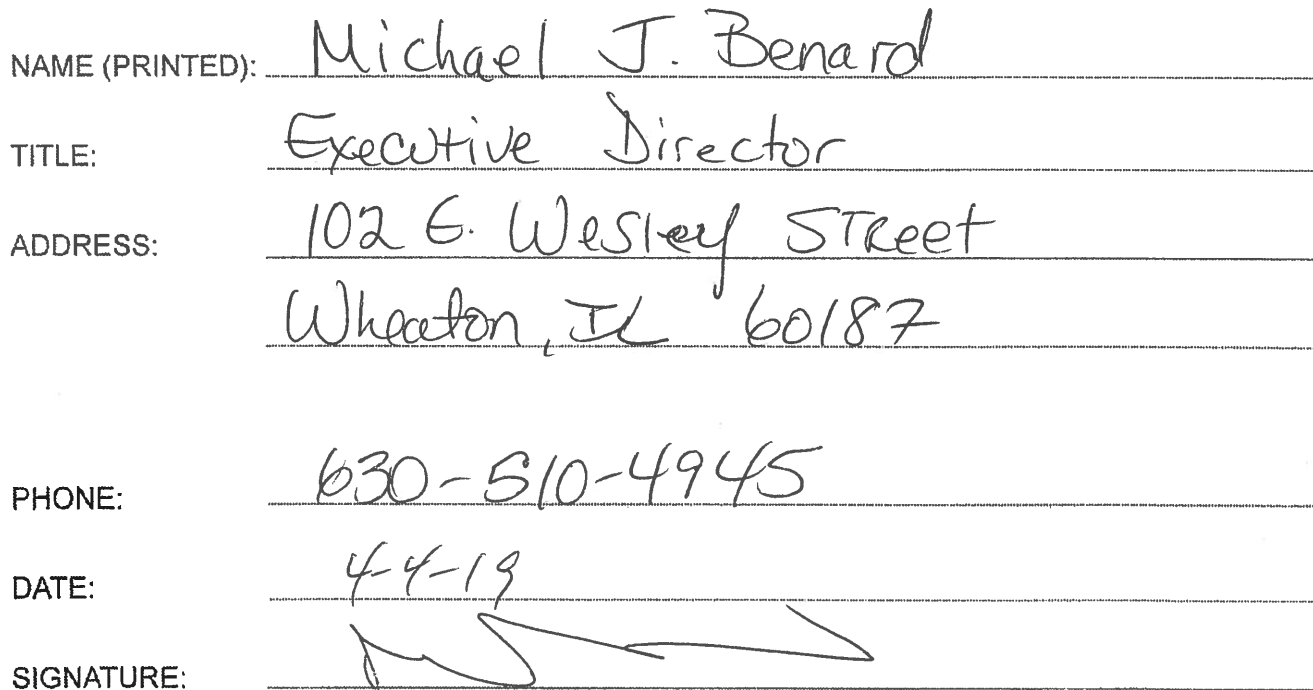 NAME (PRINTED): Michael J. Benard
TITLE: Executive Director
ADDRESS: 102 E. Wesley STReet
Wheaton, IL 60187
PHONE: 630-510-4945
DATE: 4-4-19
SIGNATURE: